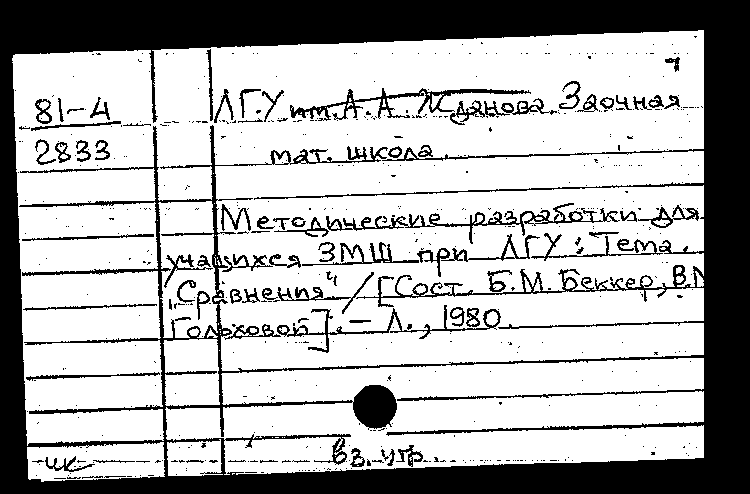 81-4 ЛГУ им. А.А. Жданова. Заочная
2833 мат. школа.
Методические разработки для
учащихся ЗМШ при ЛГУ: Тема.
„Сравнения“ / [Сост. Б.М. Беккер, В.М
Гольховой]. – Л., 1980.
вз. утр.